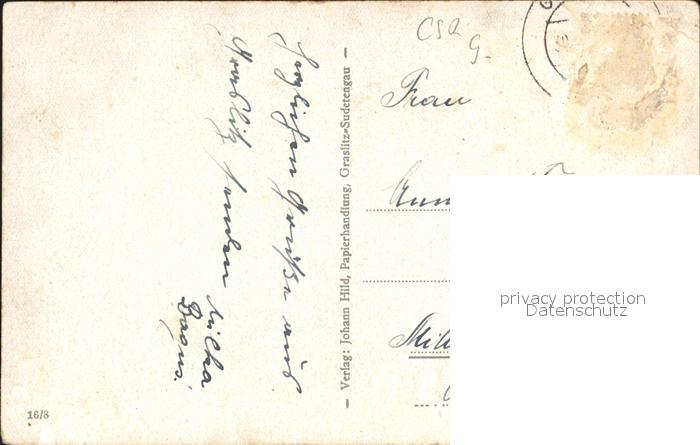 Herzlichen Grüße aus
Graslitz senden
Milka
Bagus.
— Verlag: Johann Hild, Papierhandlung, Graslitz-Sudetengau —
ČSR
G.
Frau
privacy protection
Datenschutz
16/8